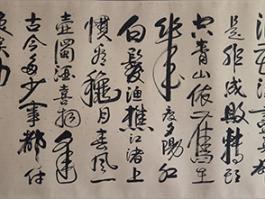 是非成敗轉頭
空青山依舊在
幾度夕陽紅
白髮漁樵江渚上
慣看穐月春風一
壺濁酒喜相逢
古今多少事都付